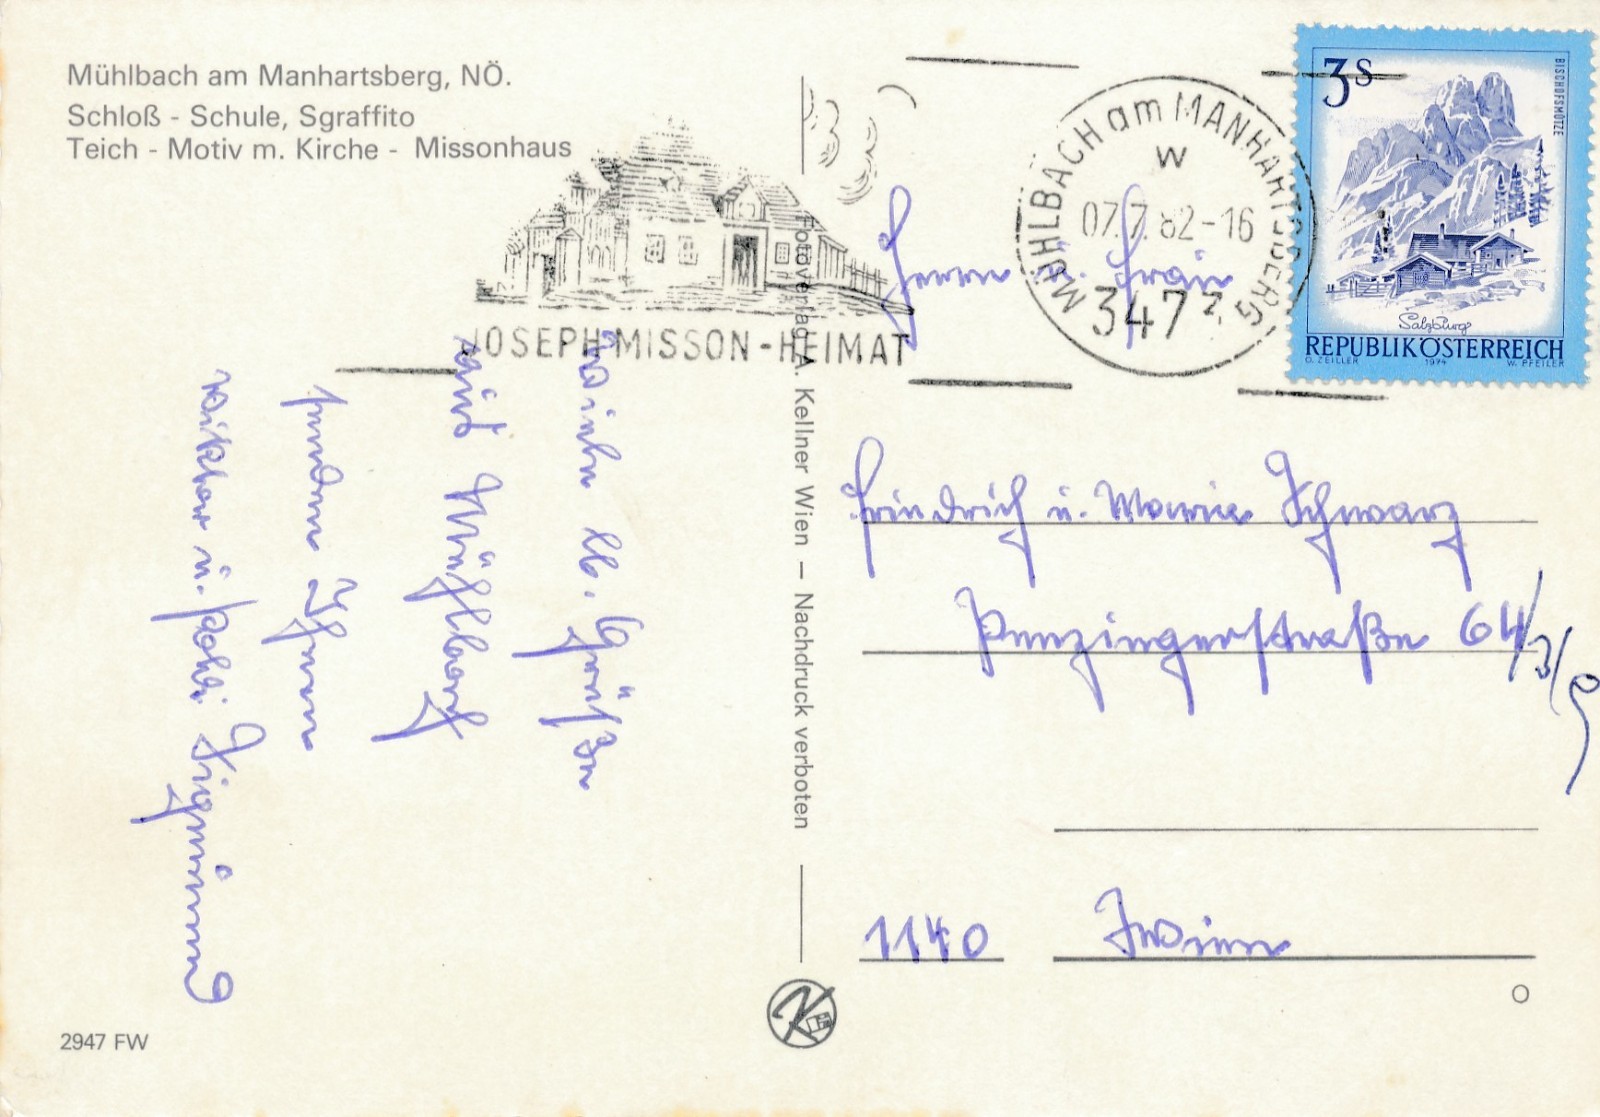 Mühlbach am Manhartsberg, NÖ.
Schloß - Schule, Sgraffito
Teich - Motiv m. Kirche - Missonhaus
JOSEPH MISSON-HEIMAT
MÜHLBACH am MANHARTSBERG
w
07.7.82-16
3472
3 S
BISCHOFSMÜTZE
Salzburg
REPUBLIK ÖSTERREICH
O. ZEILLER 1974 W. PFEILER
Viele lb. Grüße
aus Mühlbach
senden Ihnen
Viktor u. Poldi
Fotoverlag A. Kellner Wien — Nachdruck verboten
Herrn u. Frau
Friedrich u. Maria Schwarz
Penzingerstraße 64/3/9
1140 Wien
K
O
2947 FW